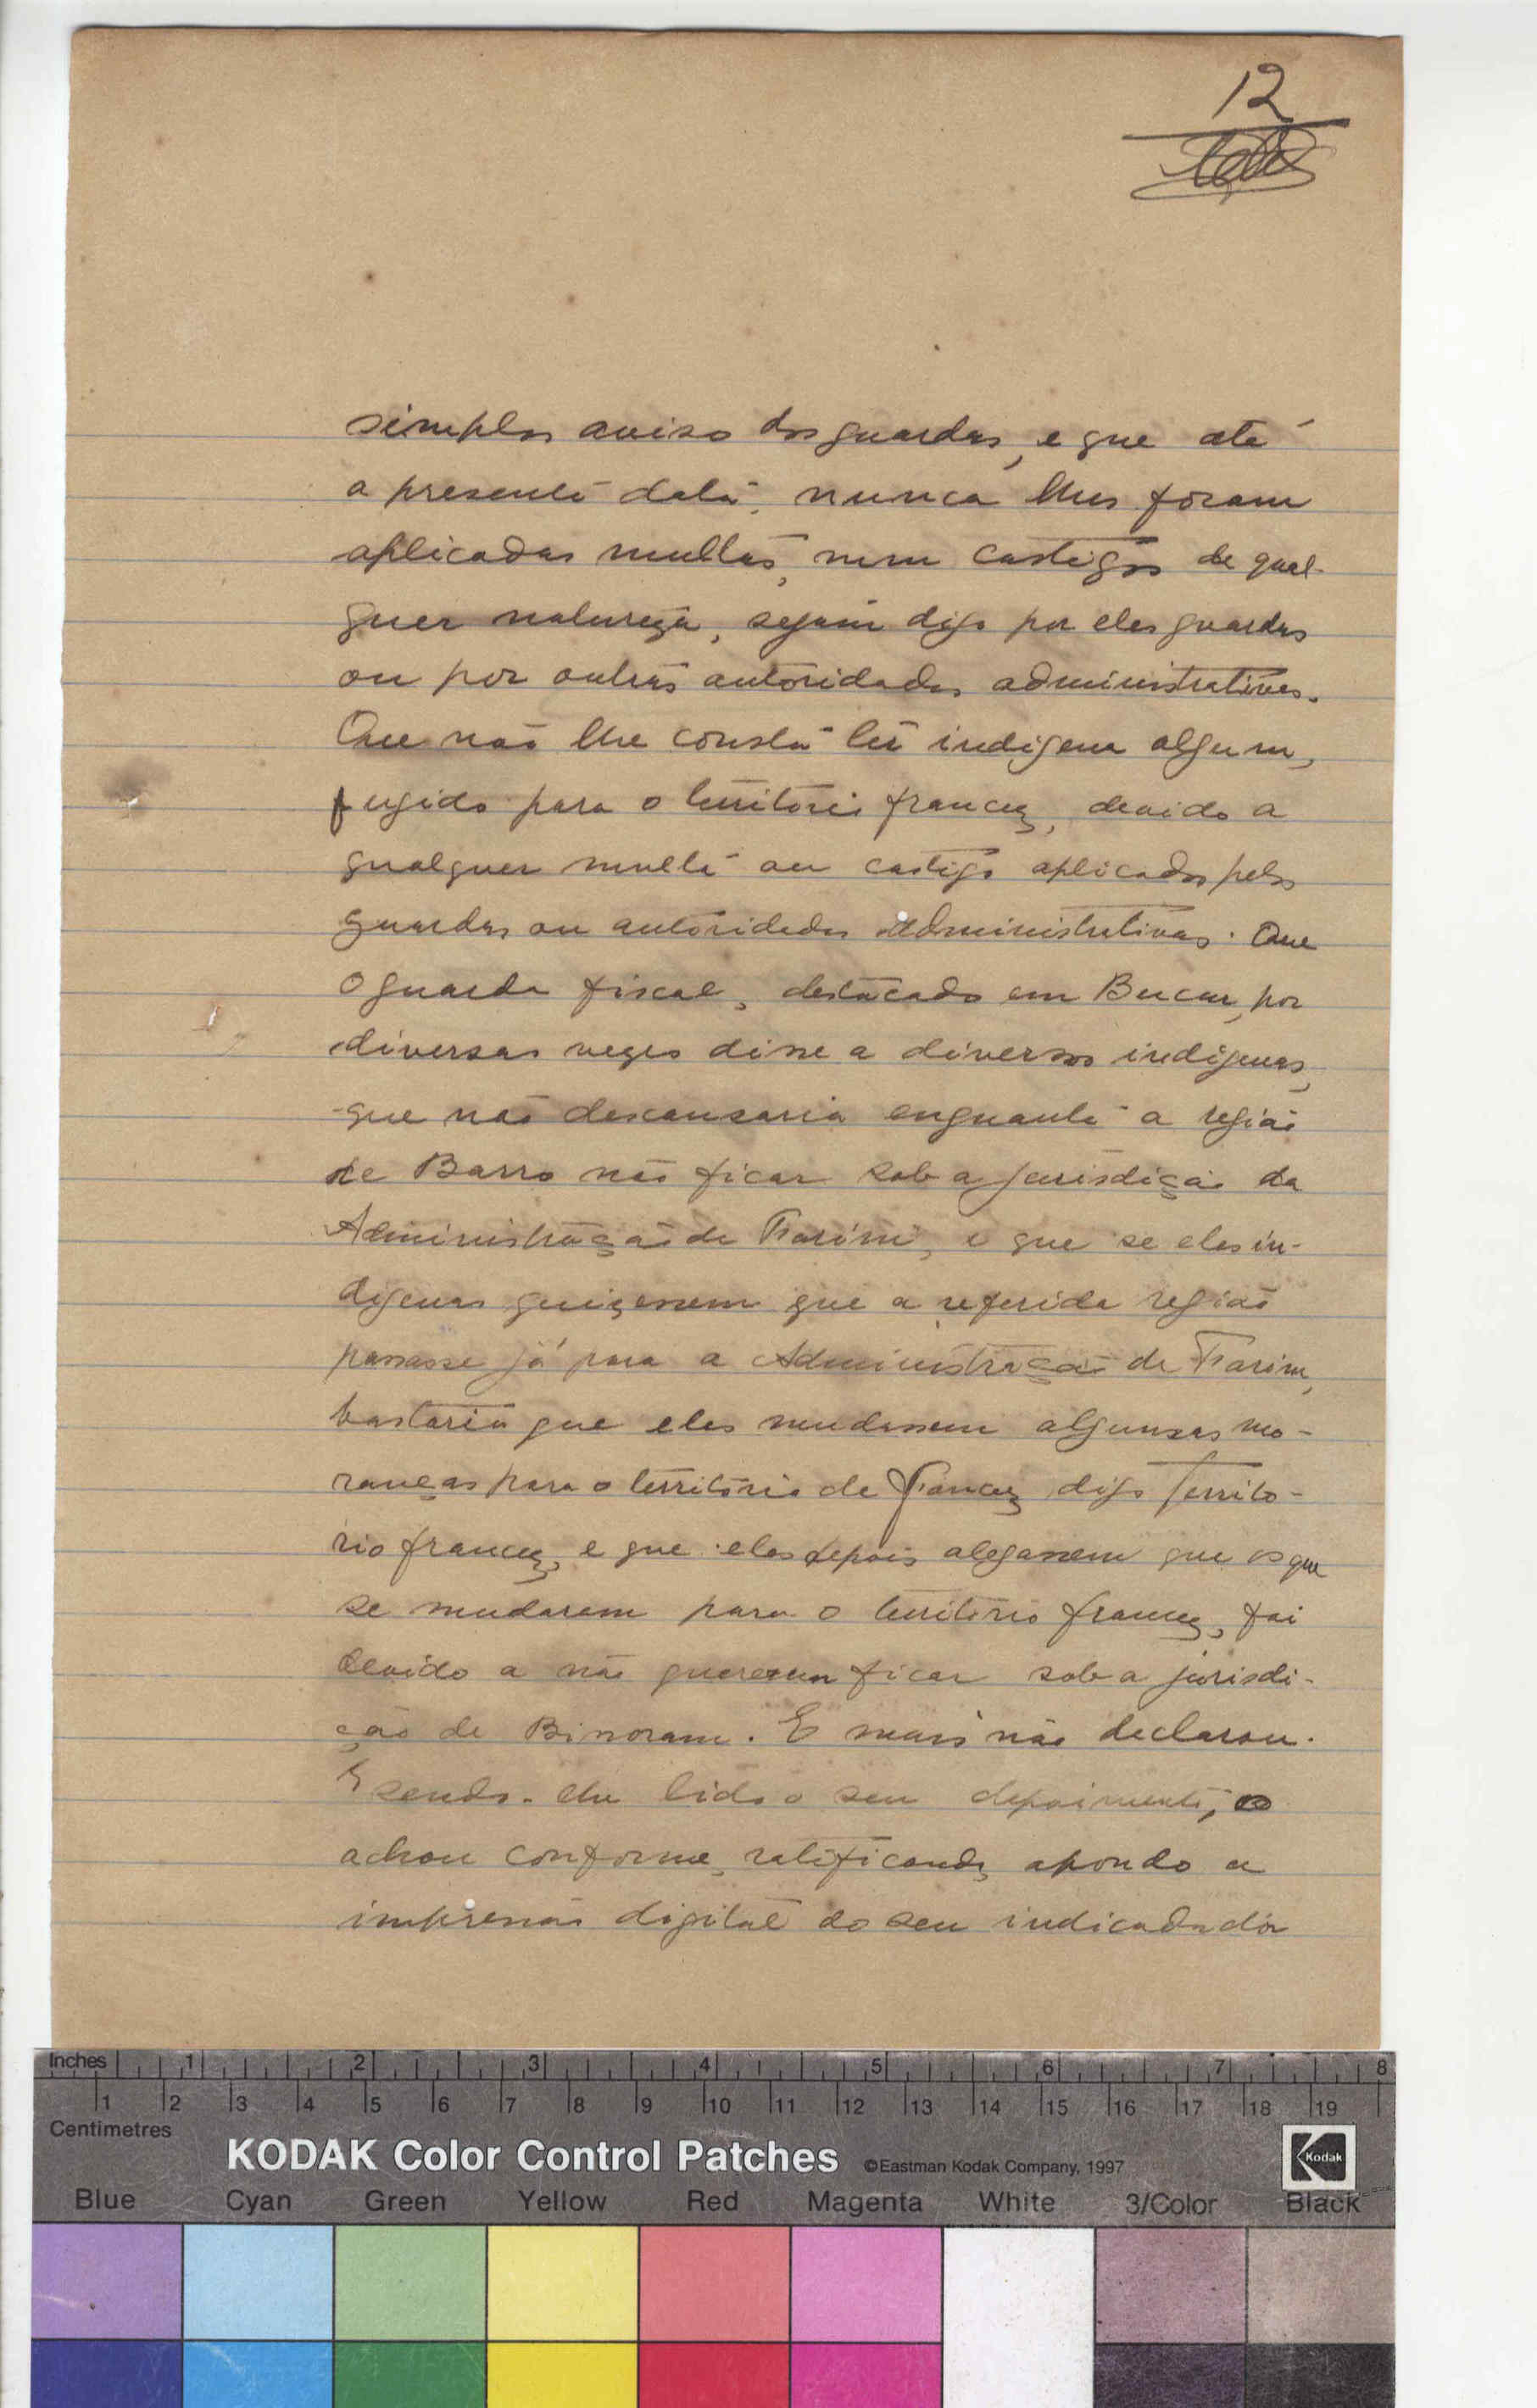 12
simples aviso dos guardas, e que até
a presente data, nunca lhes foram
aplicadas multas, nem castigos de qual-
quer natureza, sejam digo por eles guardas
ou por outras autoridades administrativas.
Que não lhe consta ter indigena algum,
fugido para o territorio francez, devido a
qualquer multa ou castigo aplicados pelos
guardas ou autoridades Administrativas. Que
o guarda fiscal, destacado em Bucau, por
diversas vezes disse a diversos indigenas,
que não descansaria enquanto a região
de Barro não ficar sob a jurisdição da
Administração de Farim, e que se eles in-
digenas quizessem que a referida região
passasse já para a Administração de Farim,
bastaria que eles mudassem algumas mo-
ranças para o territorio de Francez digo Territo-
rio francez, e que eles depois alegassem que os que
se mudarem para o territorio francez, foi
devido a não quererem ficar sob a jurisdi-
ção de Binoram. E mais não declarou.
E sendo-lhe lido o seu depoimento, o
achou conforme, ratificando, apondo a
impressão digital do seu indicador
Inches 1 2 3 4 5 6 7 8
1 2 3 4 5 6 7 8 9 10 11 12 13 14 15 16 17 18 19
Centimetres
KODAK Color Control Patches ©Eastman Kodak Company, 1997 Kodak
Blue Cyan Green Yellow Red Magenta White 3/Color Black